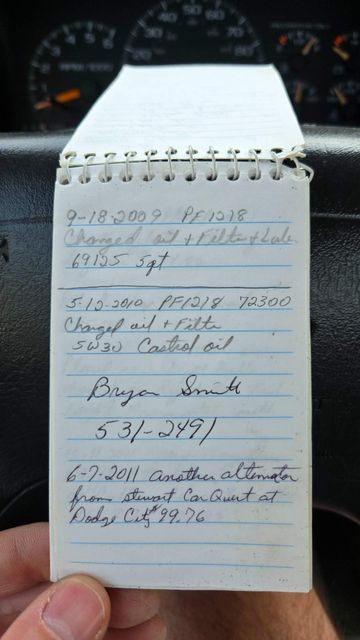 9-18-2009 PF1218
Changed oil + Filter + Lube
69125 5qt
5-12-2010 PF1218 72300
Changed oil + Filte
5W30 Castrol oil
Bryan Smith
531-2491
6-7-2011 another alternator
from stewart CarQuest at
Dodge City $99.76